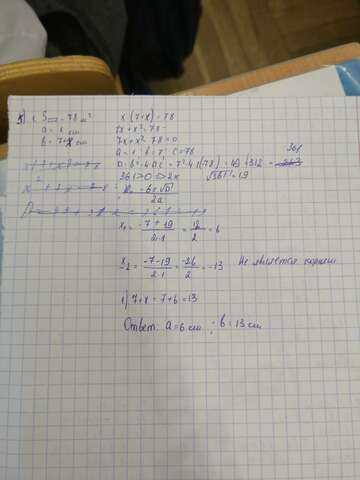 S = 78 м²
x(7+x)=78
a = x cm
7x+x²=78
b = 7+x cm
7x+x²-78=0
a=1, b=7, c=78
D=b²-4ac=7²-4·1(78)=49+312=361
361>0 => 2x
√361=19
-b±√D
2a
x₁=-7+19/2·1=12/2=6
x₂=-7-19/2·1=-26/2=-13 Не является корнем
1) 7+x=7+6=13
Ответ: a=6 cm; b=13 cm